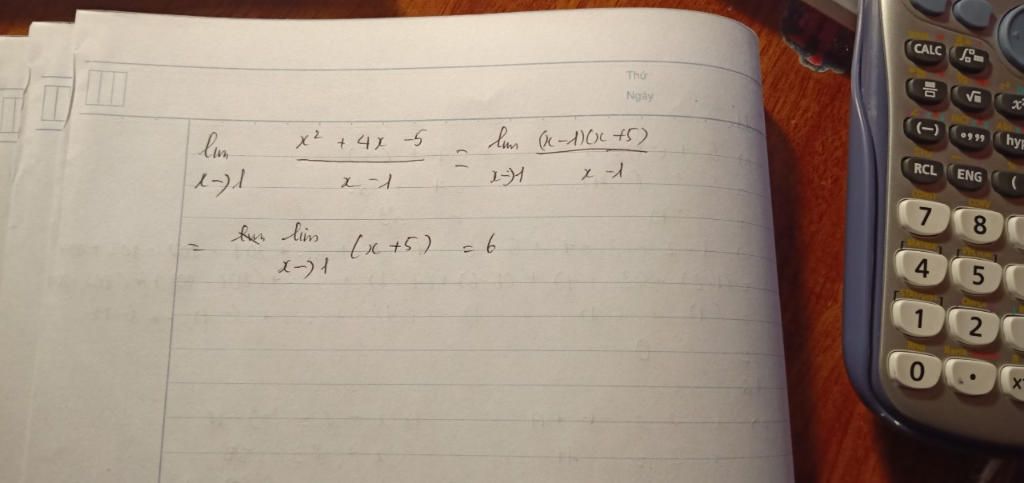 Thứ
Ngày
lim x→1 (x² + 4x - 5)/(x - 1) = lim x→1 ((x-1)(x+5))/(x - 1)
= lim x→1 (x+5) = 6
CALC
√
(−)
hyp
RCL ENG (
7 8
4 5
1 2
0 •